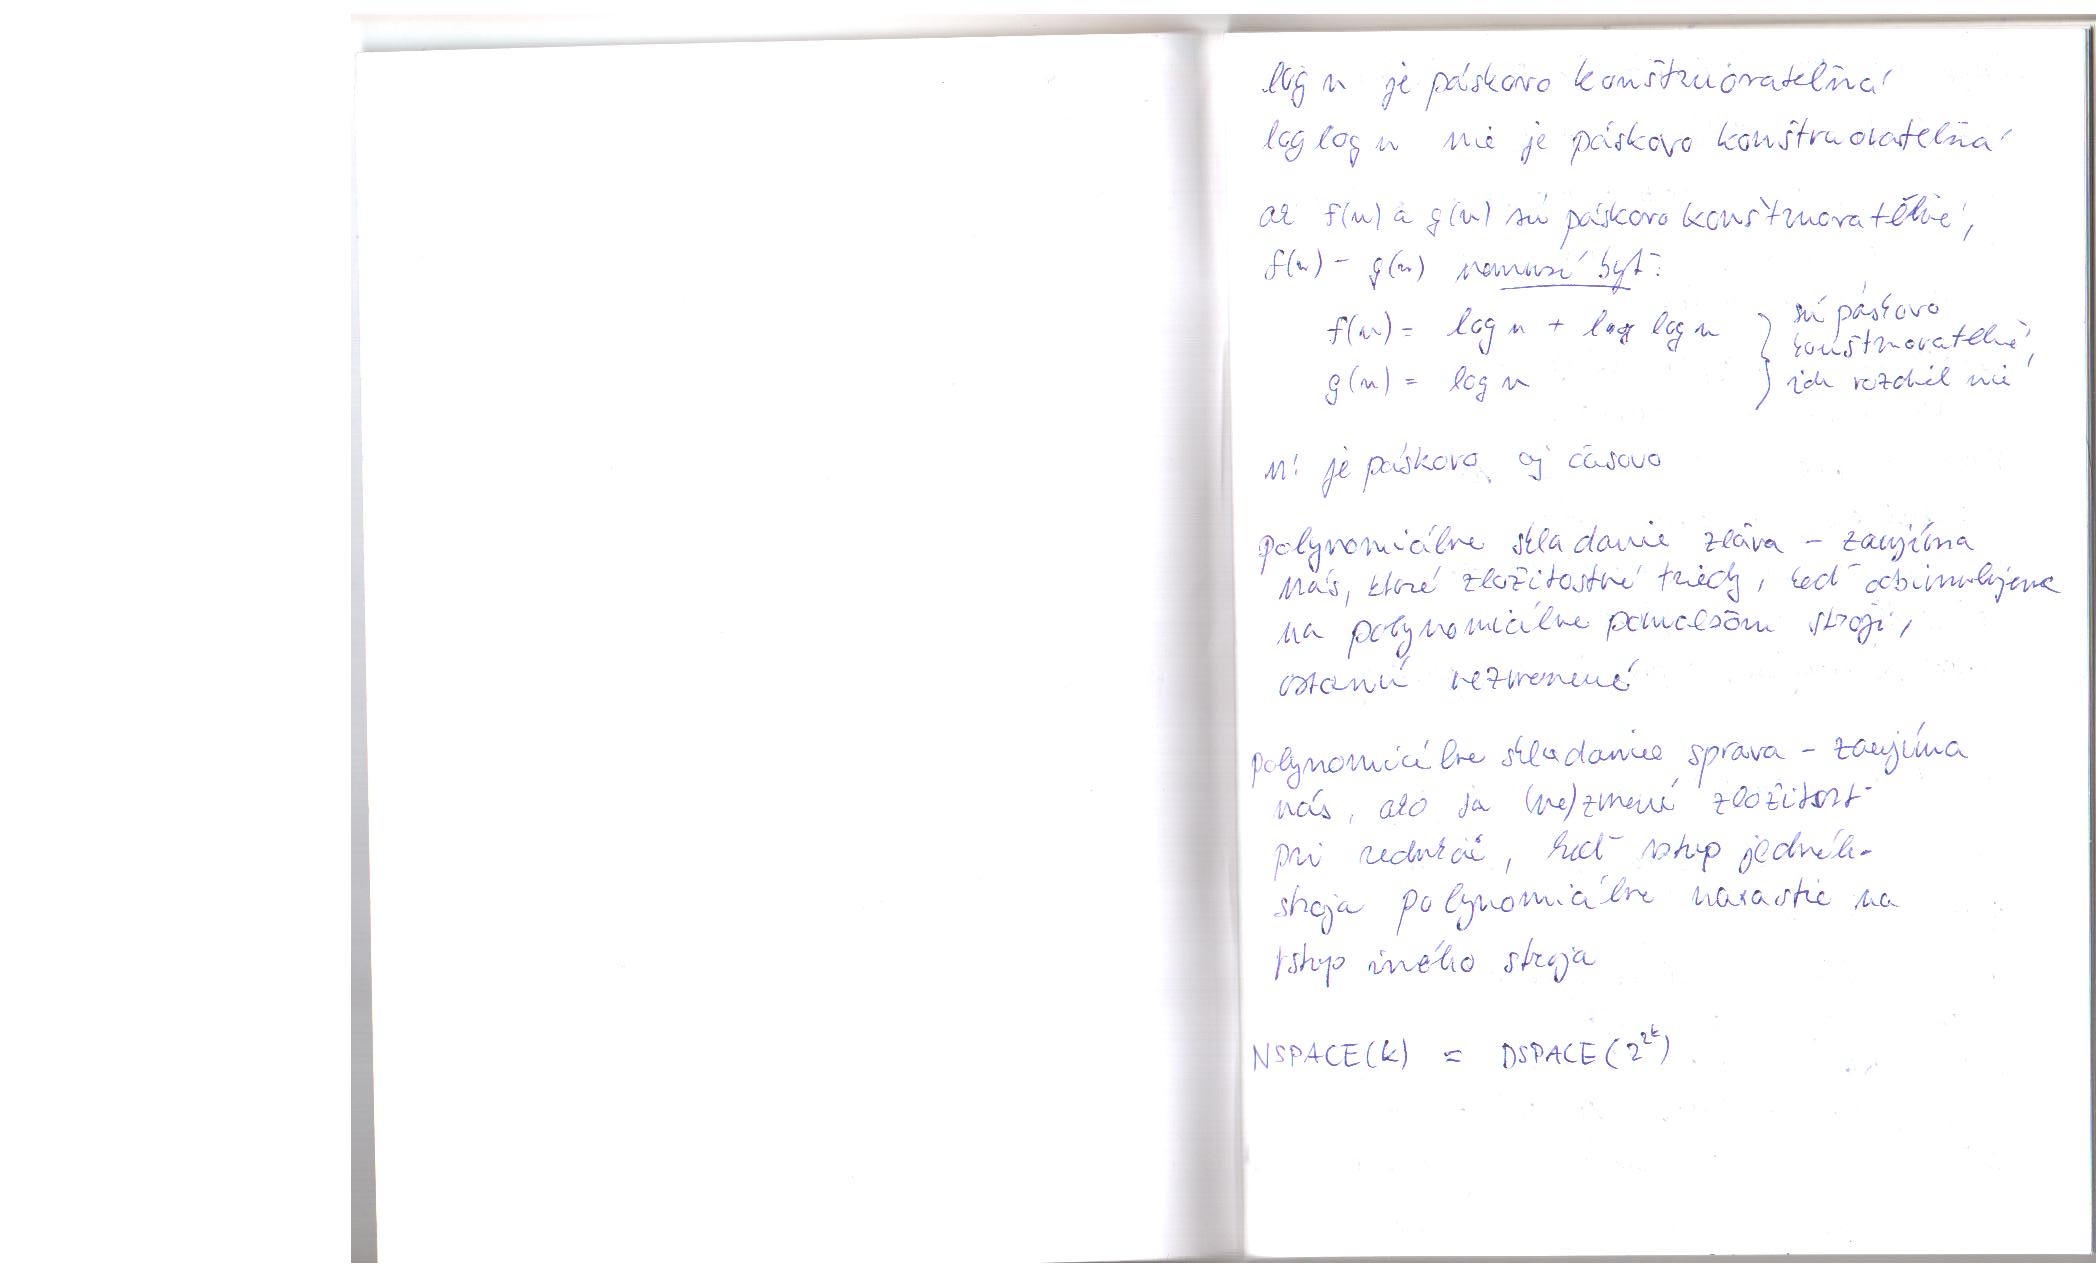 log n je páskovo konštruovateľná
log log n nie je páskovo konštruovateľná
ak f(n) a g(n) sú páskovo konštruovateľné,
f(n) - g(n) nemusí byť:
f(n) = log n + log log n
g(n) = log n
} sú páskovo
konštruovateľné,
ich rozdiel nie
n! je páskovo aj časovo
polynomiálne skladanie zľava - zaujíma
nás, ktoré zložitostné triedy, keď odsimulujeme
na polynomiálne pomalšom stroji,
ostanú nezmenené
polynomiálne skladanie sprava - zaujíma
nás, ako sa (ne)zmení zložitosť
pri redukcií, keď vstup jedného
stroja polynomiálne narastie na
vstup iného stroja
NSPACE(k) = DSPACE(2^{2^k})